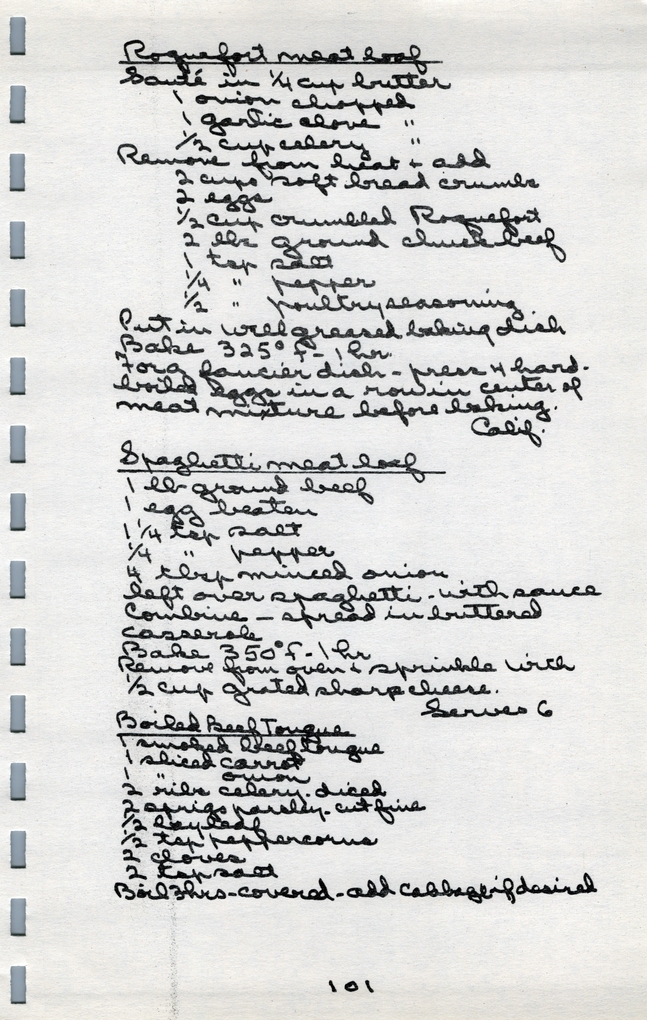 Roquefort meat loaf
Sauté in ¼ cup butter
1 onion chopped
1 garlic clove "
½ cup celery "
Remove from heat + add
2 cups soft bread crumbs
2 eggs
½ cup crumbled Roquefort
2 lbs ground chuck beef
1 tsp salt
¼ " pepper
½ " poultry seasoning
Put in well greased baking dish
Bake 325° f - 1 hr.
For a fancier dish - press 4 hard-
boiled eggs in a row in center of
meat mixture before baking.
Calif.
Spaghetti meat loaf
1 lb ground beef
1 egg beaten
1 ¼ tsp salt
¼ " pepper
4 tbsp minced onion
left over spaghetti - with sauce
Combine - spread in buttered
casserole
Bake 350° f - 1 hr
Remove from oven + sprinkle with
½ cup grated sharp cheese.
Serves 6
Boiled Beef Tongue
1 smoked beef tongue
1 sliced carrot
1 " onion
2 ribs celery - diced
2 sprigs parsley - cut fine
½ bayleaf
½ tsp peppercorns
2 cloves
2 tsp salt
Boil 3 hrs - covered - add cabbage if desired
101